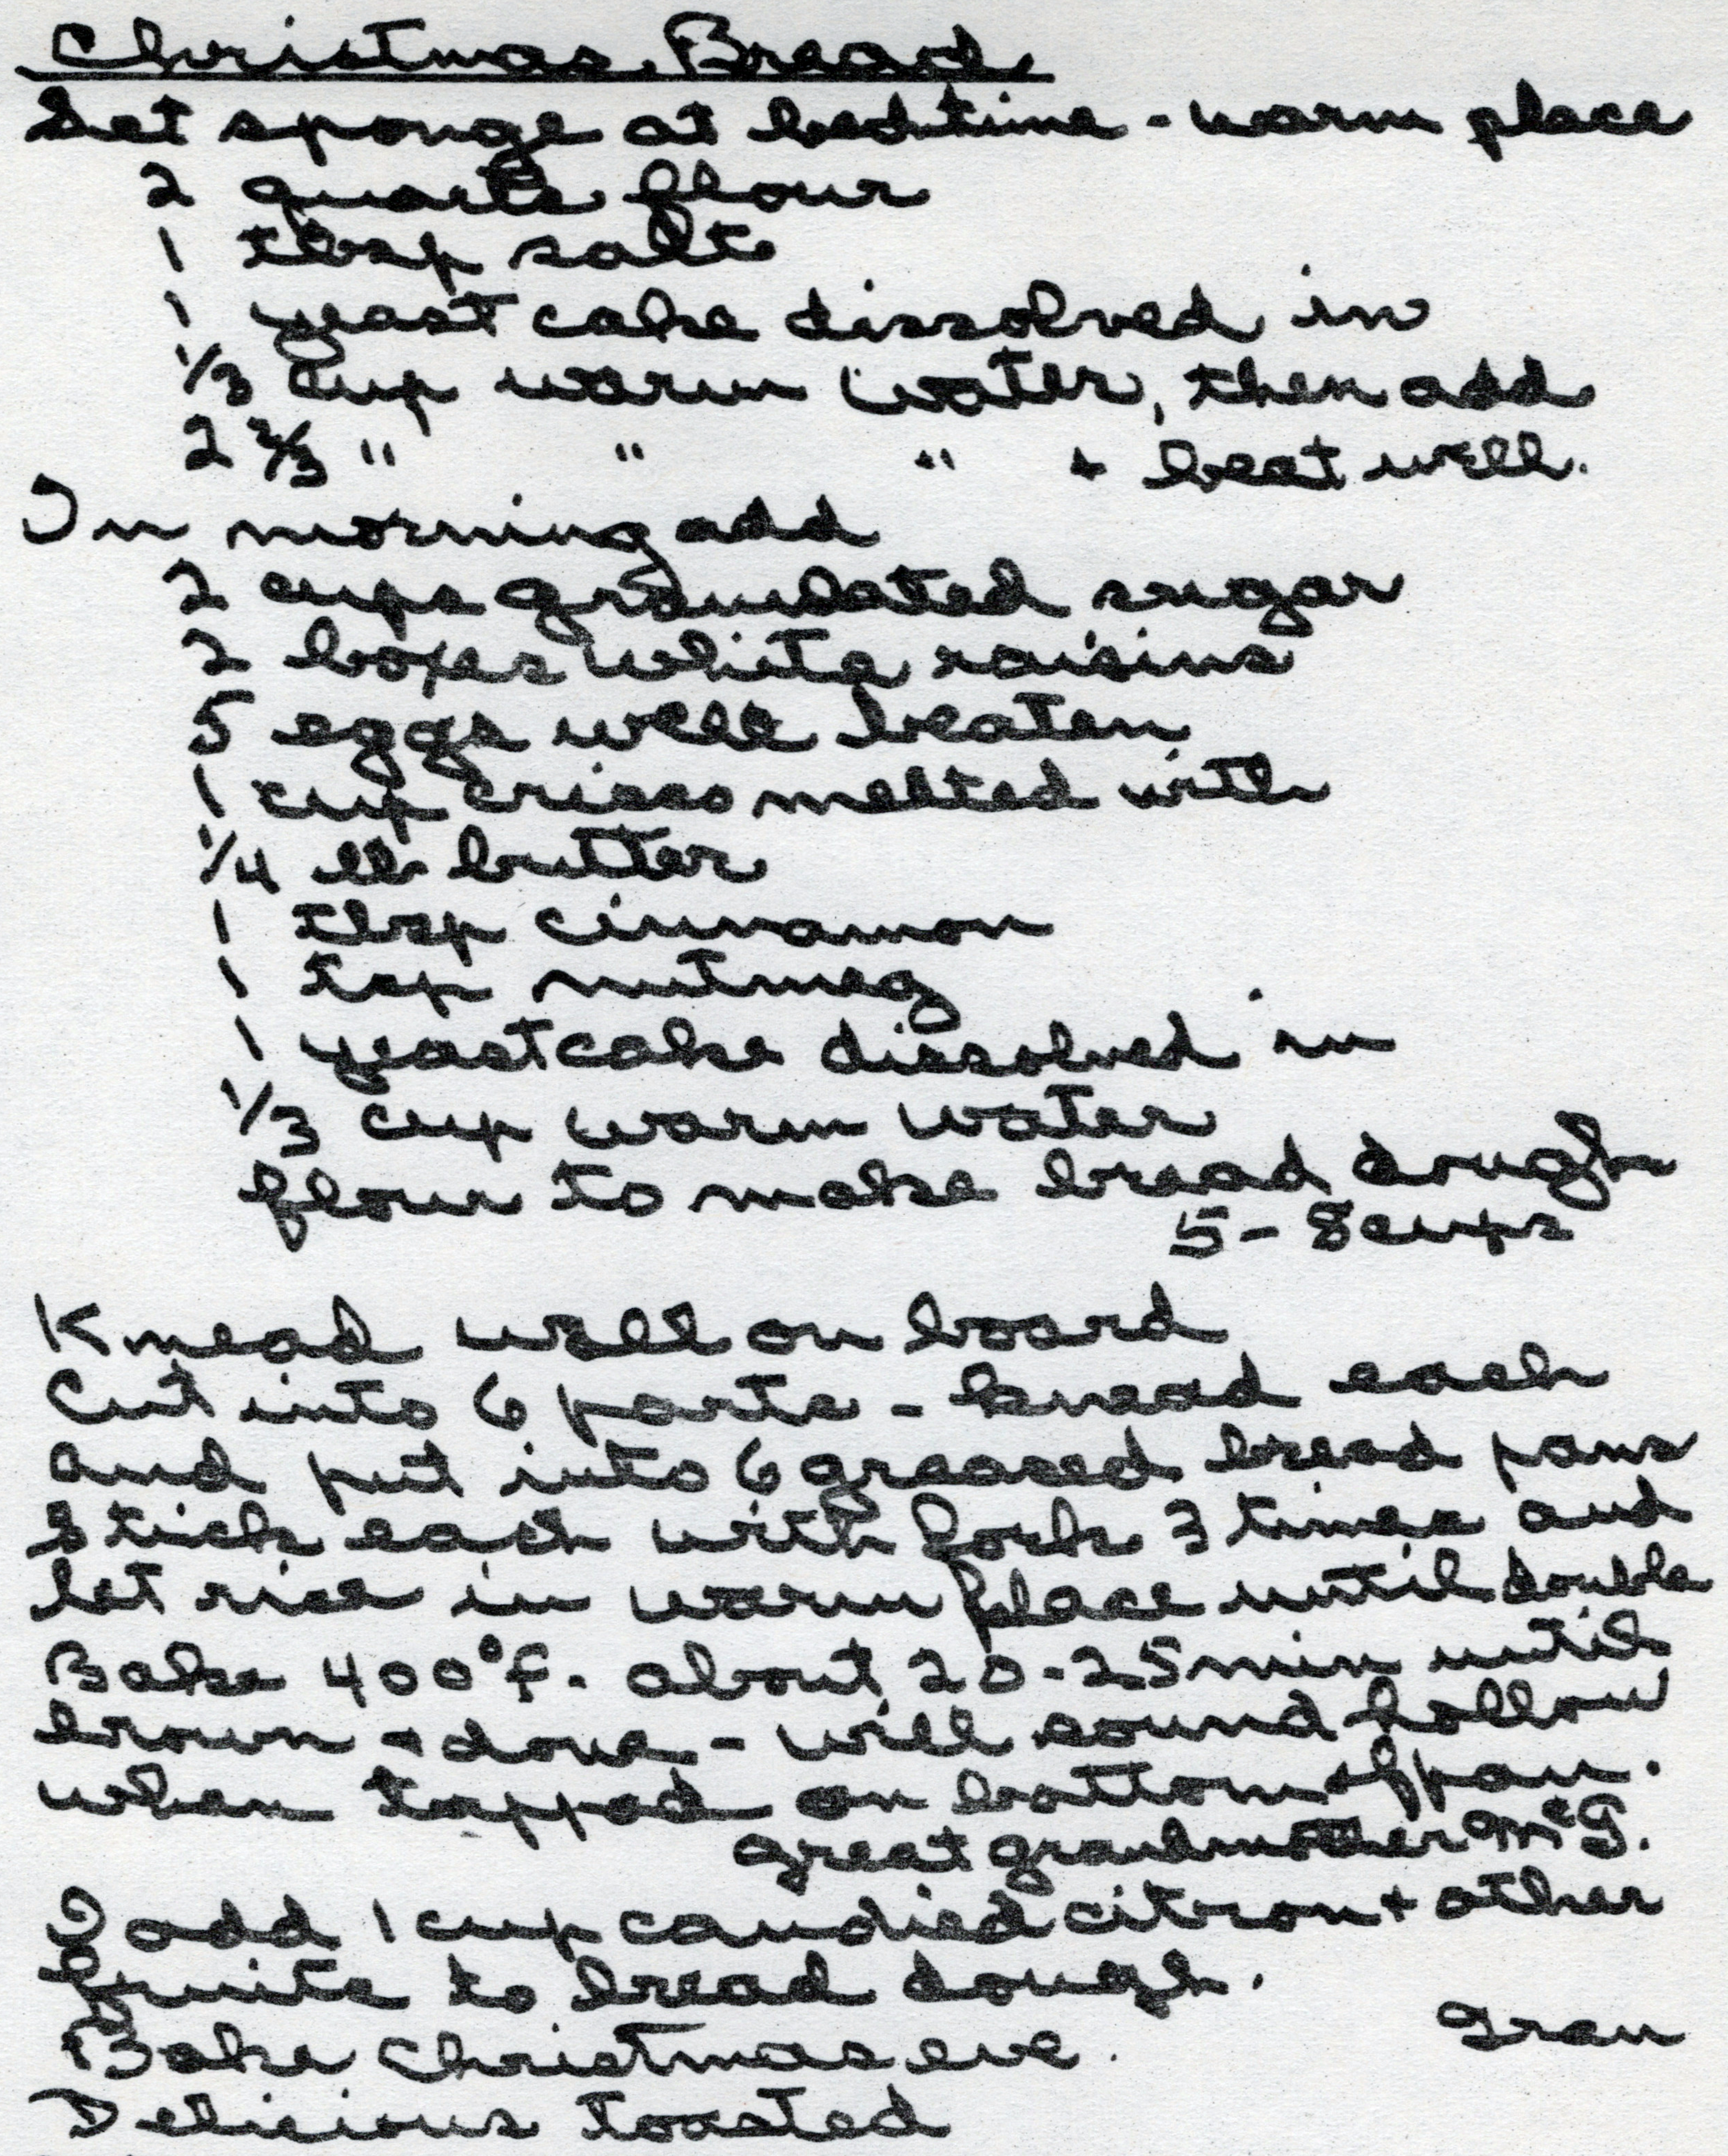 Christmas Bread
Set sponge at bedtime - warm place
2 quarts flour
1 tbsp salt
1 yeast cake dissolved in
1/3 cup warm water, then add
2 2/3 " " " + beat well.
In morning add
2 cups granulated sugar
2 boxes white raisins
5 eggs well beaten
1 cup crisco melted with
1/4 lb butter
1 tbsp cinnamon
1 tsp nutmeg
1 yeast cake dissolved in
1/3 cup warm water
flour to make bread dough
5-8 cups
Knead well on board
Cut into 6 parts - knead each
and put into 6 greased bread pans
Stick each with fork 3 times and
let rise in warm place until double
Bake 400°F. about 20-25 min until
brown + done - will sound hollow
when tapped on bottom of pan.
Great grandmother McG.
I add 1 cup candied citron + other
fruits to bread dough.
Gran
Bake Christmas eve.
Delicious toasted